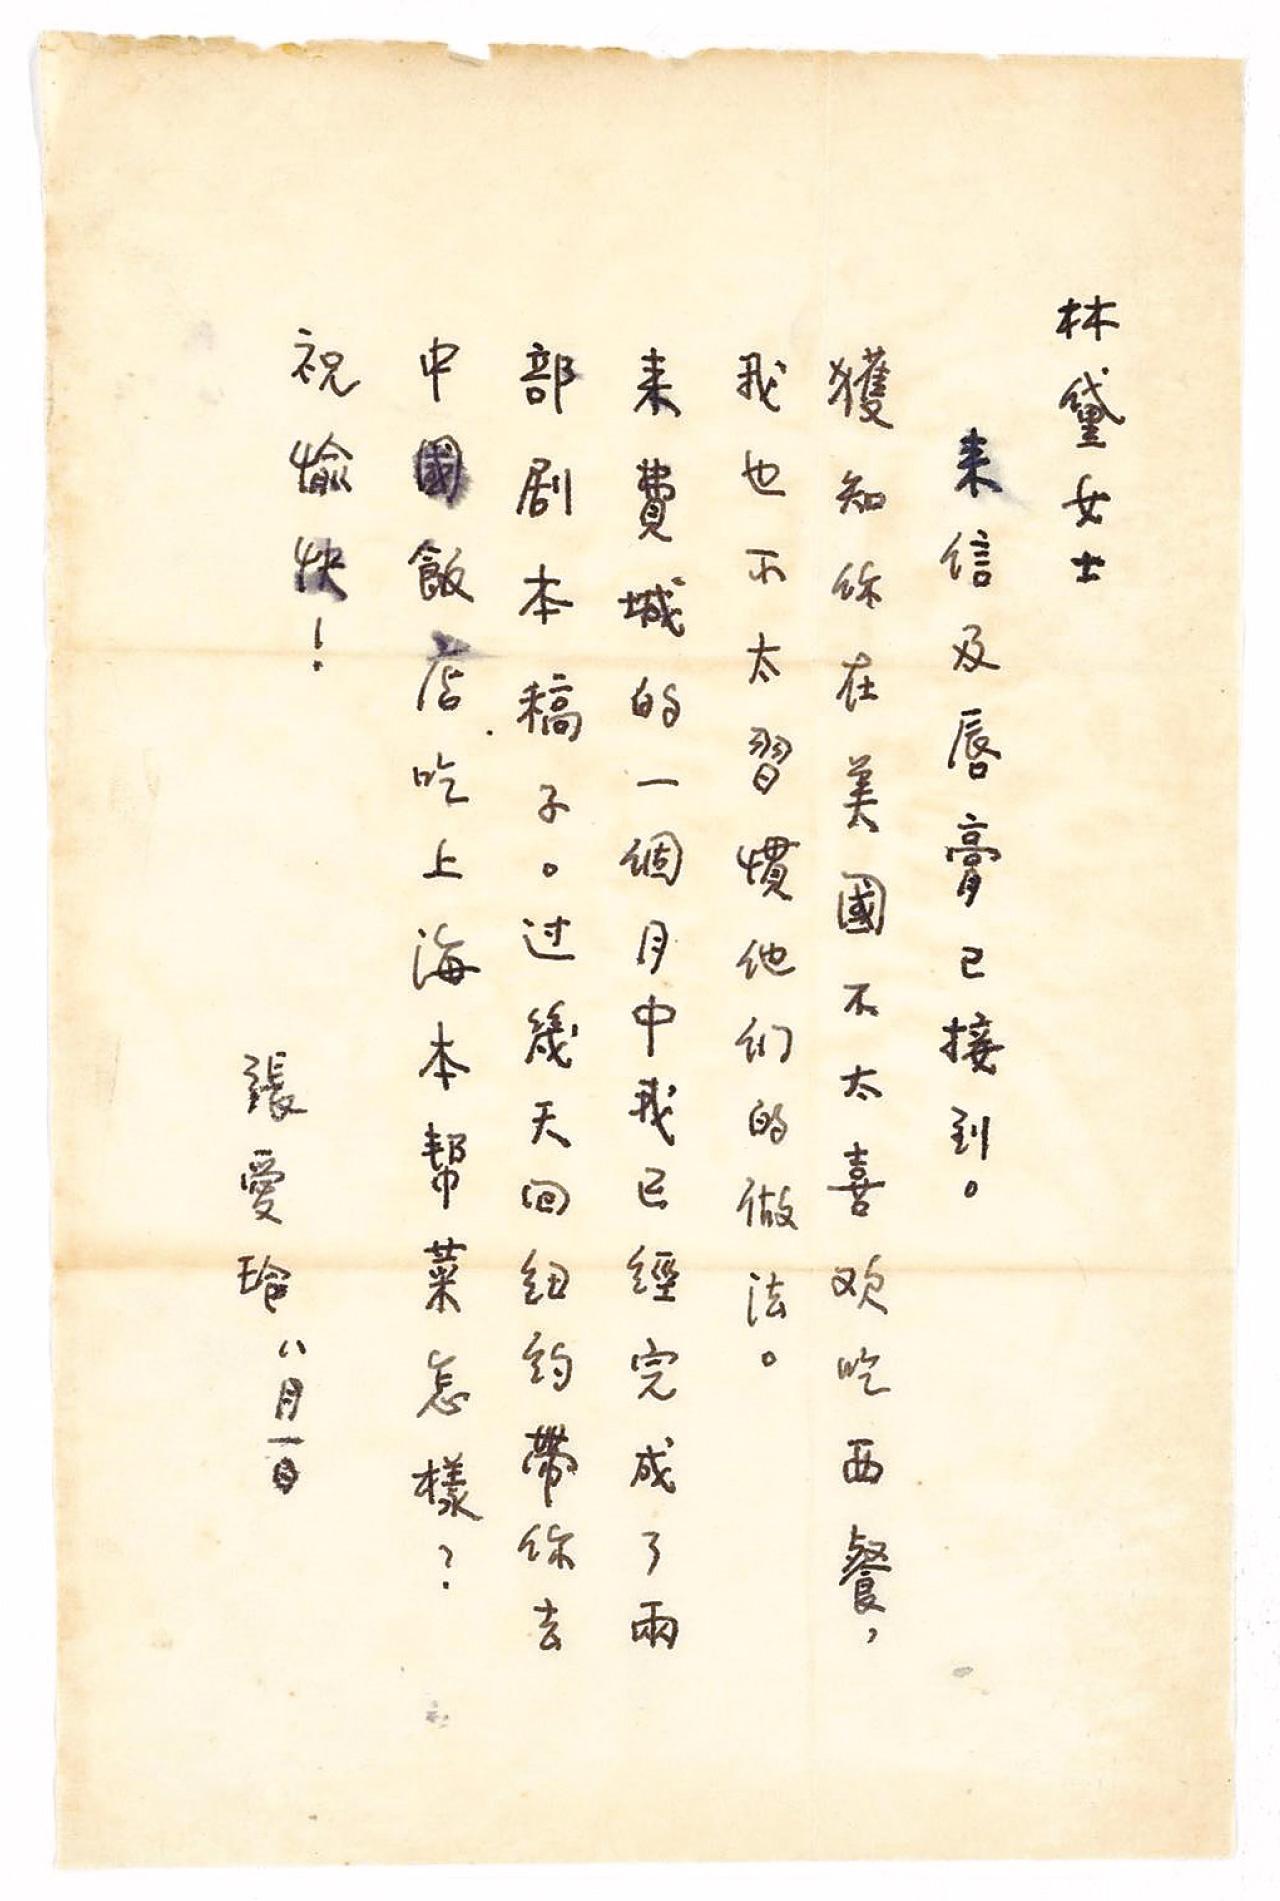 林黛女士
来信及唇膏已接到。
獲知你在美國不太喜欢吃西餐，
我也不太習慣他们的做法。
来費城的一個月中我已經完成了兩
部剧本稿子。过幾天回紐約帶你去
中國飯店吃上海本幫菜怎樣？
祝愉快！
張愛玲 八月一日